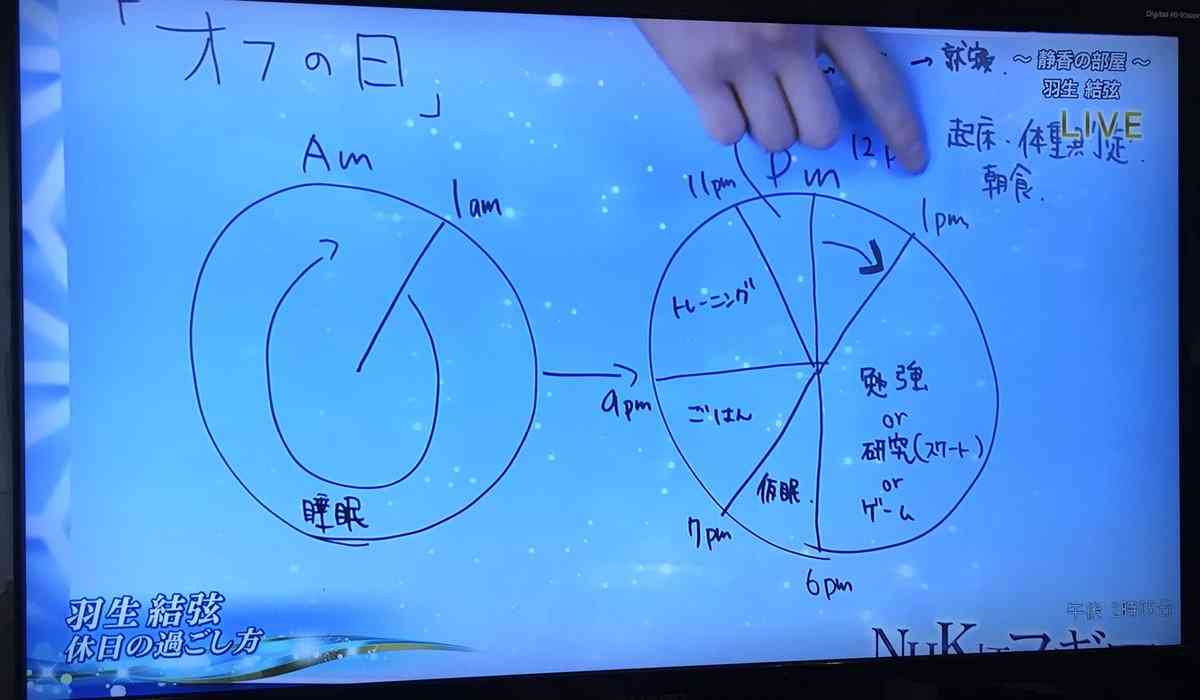 Digital Hi-Vision
「オフの日」
→ 就寝.
〜 静香の部屋 〜
羽生 結弦
LIVE
起床. 体重測定.
朝食.
Am
1am
Pm
11pm
12p
1pm
トレーニング
9pm
ごはん
勉強
or
研究(スケート)
or
ゲーム
仮眠.
睡眠
7pm
6pm
羽生 結弦
休日の過ごし方
午後